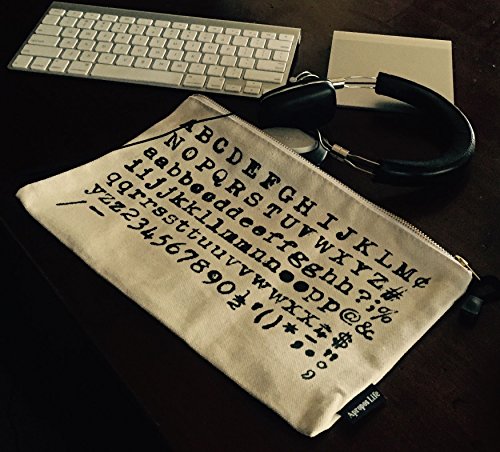 ABCDEFGHIJKLM¢
NOPQRSTUVWXYZ#
aabbooddeeffgghh?;%
iijjkkllmmnnoopp@&
qqrrssttuuvvwwxx
yzz234567890
Apropos Life